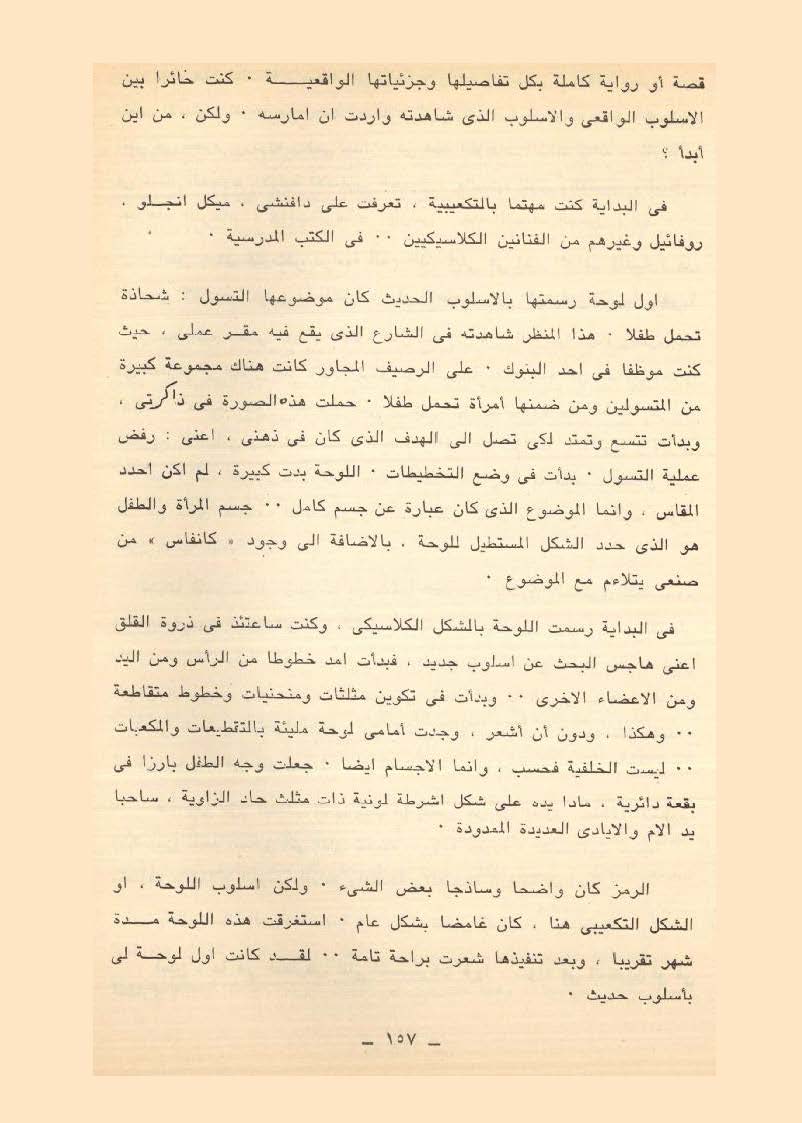 قصة أو رواية كاملة بكل تفاصيلها وجزئياتها الواقعيـــــة ٠ كنت خائرا بين
الاسلوب الواقعى والاسلوب الذى شاهدته واردت ان امارسه ٠ ولكن ، من اين
أبدأ ؟
فى البداية كنت مهتما بالتكعيبية ، تعرفت على دافنشى ، ميكل انجـلو ،
روفائيل وغيرهم من الفنانين الكلاسيكيين ٠٠ فى الكتب المدرسية ٠
اول لوحة رسمتها بالاسلوب الحديث كان موضوعها التسول : شحاذة
تحمل طفلا ٠ هذا المنظر شاهدته فى الشارع الذى يقع فيه مقـر عملى ، حيث
كنت موظفا فى احد البنوك ٠ على الرصيف المجاور كانت هناك مجموعة كبيرة
من المتسولين ومن ضمنها أمرأة تحمل طفلا ٠ حملت هذه الصورة فى ذاكرتى ،
وبدأت تتسع وتمتد لكى تصل الى الهدف الذى كان فى ذهنى ، اعنى : رفض
عملية التسول ٠ بدأت فى وضع التخطيطات ٠ اللوحة بدت كبيرة ، لم اكن احدد
المقاس ، وانما الموضوع الذى كان عبارة عن جسم كامل ٠٠ جسم المرأة والطفل
هو الذى حدد الشكل المستطيل للوحة ، بالاضافة الى وجود « كانفاس » من
صنعى يتلاءم مع الموضوع ٠
فى البداية رسمت اللوحة بالشكل الكلاسيكى ، وكنت ساعتئذ فى ذروة القلق
اعنى هاجس البحث عن اسلوب جديد ، فبدأت امد خطوطا من الرأس ومن اليد
ومن الاعضاء الاخرى ٠٠ وبدأت فى تكوين مثلثات ومنحنيات وخطوط متقاطعة
٠٠ وهكذا ، ودون أن أشعر ، وجدت أمامى لوحة مليئة بالتقطيعات والمكعبات
٠٠ ليست الخلفية فحسب ، وانما الاجسام ايضا ٠ جعلت وجه الطفل بارزا فى
بقعة دائرية ، مادا يده على شكل اشرطة لونية ذات مثلث حاد الزاوية ، ساحبا
يد الام والايادى العديدة الممدودة ٠
الرمز كان واضحا وساذجا بعض الشىء ٠ ولكن اسلوب اللوحة ، او
الشكل التكعيبى هنا ، كان غامضا بشكل عام ٠ استغرقت هذه اللوحة مـــدة
شهر تقريبا ، وبعد تنفيذها شعرت براحة تامة ٠٠ لقـــد كانت اول لوحـة لى
بأسلوب حديث ٠
_ ١٥٧ _